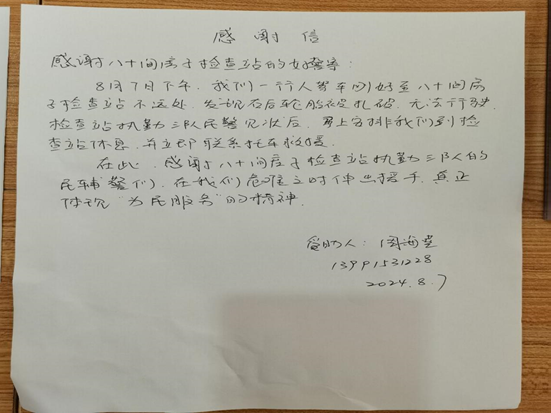 感谢信
感谢八十间房子检查站的好警察：
8月7日下午，我们一行人驾车刚好至八十间房
子检查站不远处，发现右后轮胎被扎破，无法行驶，
检查站执勤三队民警见状后，马上安排我们到检
查站休息，并立即联系拖车救援。
在此，感谢八十间房子检查站执勤三队的
民辅警们，在我们危难之时伸出援手，真正
体现“为民服务”的精神。
受助人：周海
13991531228
2024.8.7